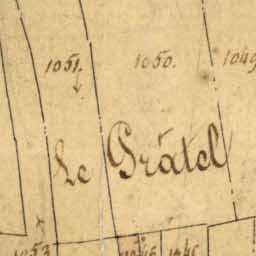 1051.
1050.
1049
Le Prâtel
1053
1046